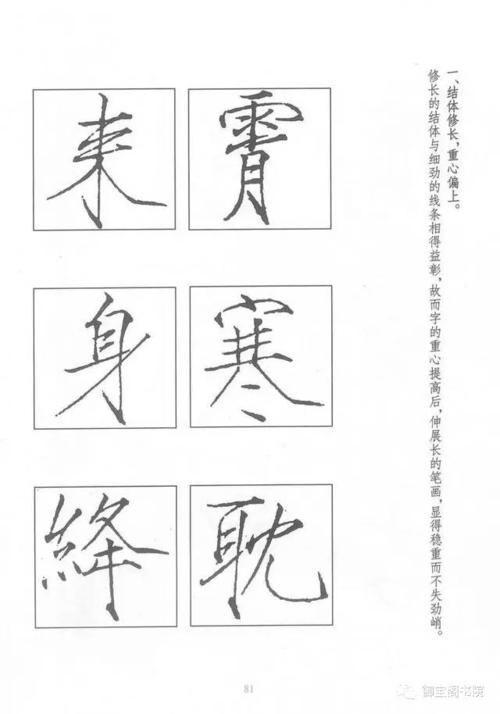 一、结体修长，重心偏上。
修长的结体与细劲的线条相得益彰，故而字的重心提高后，伸展长的笔画，显得稳重而不失劲峭。
霄
寒
耽
来
身
絳
81
御宝阁书院